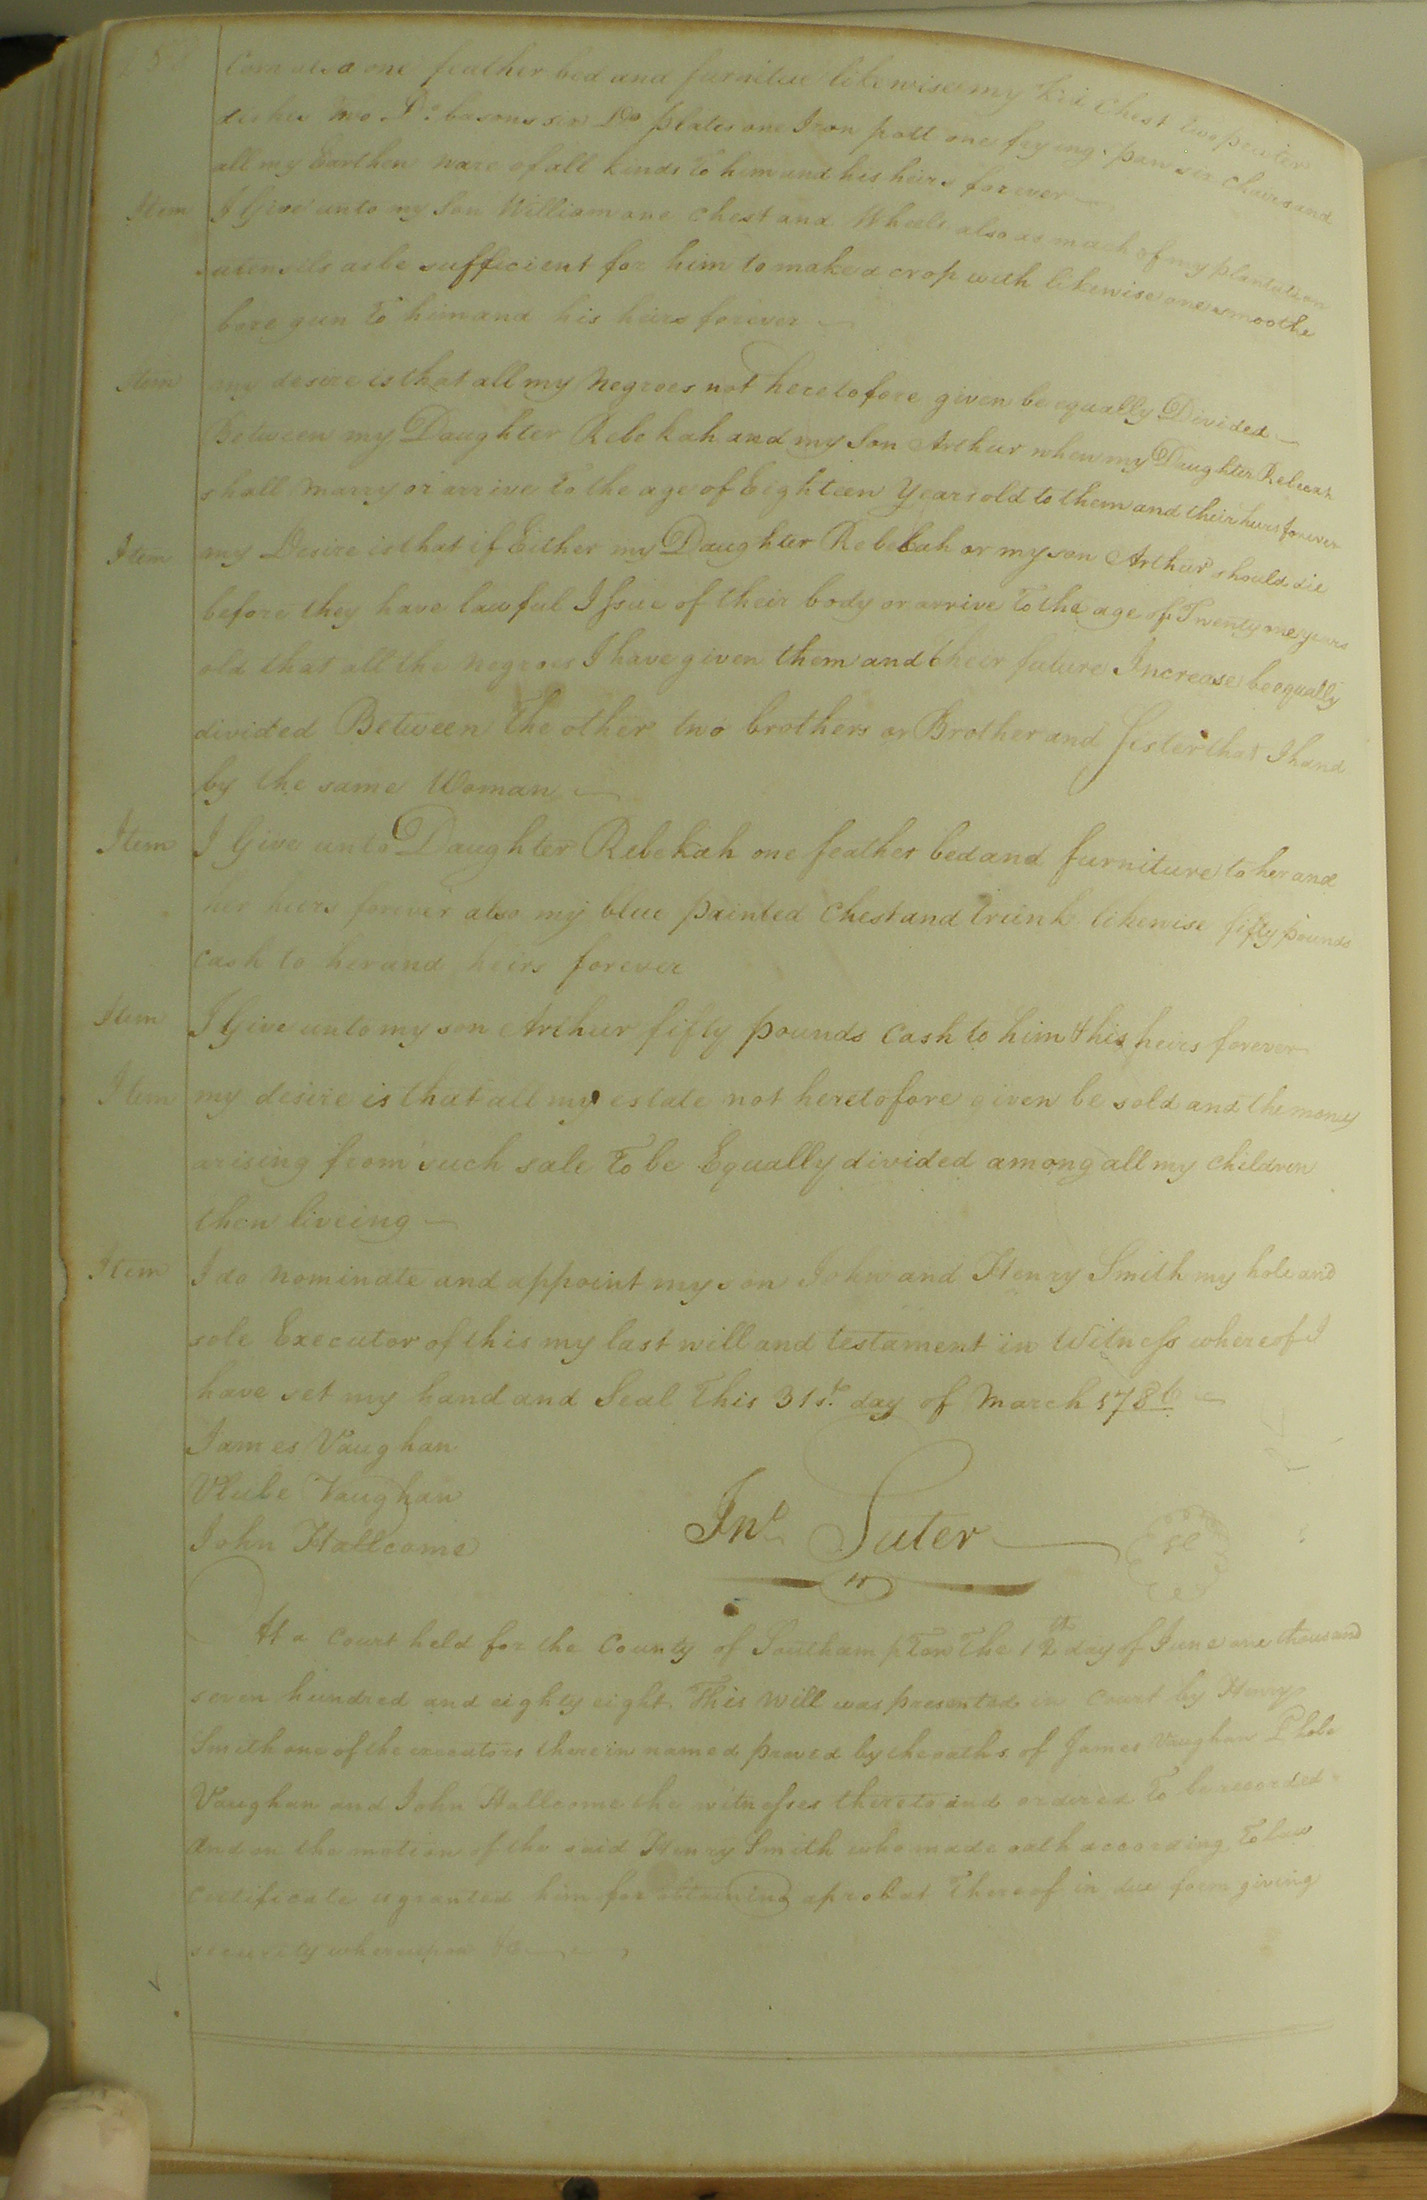 Corn also one feather bed and furnitue likewise my Chest two pewter
dishes two Do. basons six Do plates one Iron pott one frying pan six chairs and
all my Earthen ware of all kinds to him and his heirs forever
Item I Give unto my Son William one chest and Wheels also as much of my plantation
utensils as be sufficient for him to make a crop with likewise one smoothe
bore gun to him and his heirs forever
Item my desire is that all my Negroes not heretofore given be equally Divided
Between my Daughter Rebekah and my Son Arthur when my Daughter Rebecah
shall marry or arrive to the age of Eighteen Years old to them and their heirs forever
Item my Desire is that if Either my Daughter Rebekah or my son Arthur should die
before they have lawful Issue of their body or arrive to the age of Twenty one years
old that all the negroes I have given them and their future Increase be equally
divided Between the other two brothers or Brother and Sister that I hand
by the same Woman
Item I Give unto Daughter Rebekah one feather bed and furniture to her and
her heirs forever also my blue painted Chest and trunk likewise fifty pounds
cash to her and heirs forever
Item I Give unto my son Arthur fifty pounds cash to him & his heirs forever
Item my desire is that all my estate not heretofore given be sold and the money
arising from such sale to be Equally divided among all my children
then liveing
Item I do nominate and appoint my son John and Henry Smith my hole and
sole Executor of this my last will and testament in Witness whereof I
have set my hand and Seal this 31st. day of March 1786
James Vaughan
Vaughan
John Hallcome
Jno. Suter
At a Court held for the County of Southampton the 12th day of June one thousand
seven hundred and eighty eight. This Will was presented in Court by Henry
Smith one of the executors therein named proved by the oaths of James Vaughan Phebe
Vaughan and John Hallcome the witnesses thereto and ordered to be recorded
And on the motion of the said Henry Smith who made oath according to law
certificate is granted him for obtaining a probat thereof in due form giving
security whereupon &c